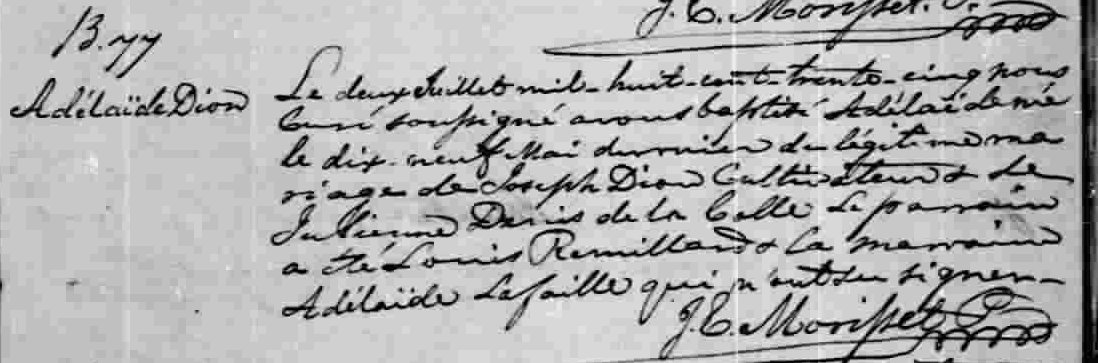 J. E. Morisset. P.
B. 77
Adélaïde Dion
Le deux Juillet mil-huit-cent-trente-cinq nous
Curé soussigné avons baptisé Adélaïde née
le dix-neuf Mai dernier du légitime ma
riage de Joseph Dion Cultivateur & de
Julienne Denis de la Colle Le parrain
a été Louis Remillard & la marraine
Adélaïde Lafaille qui n'ont su signer
J. E. Morisset P.